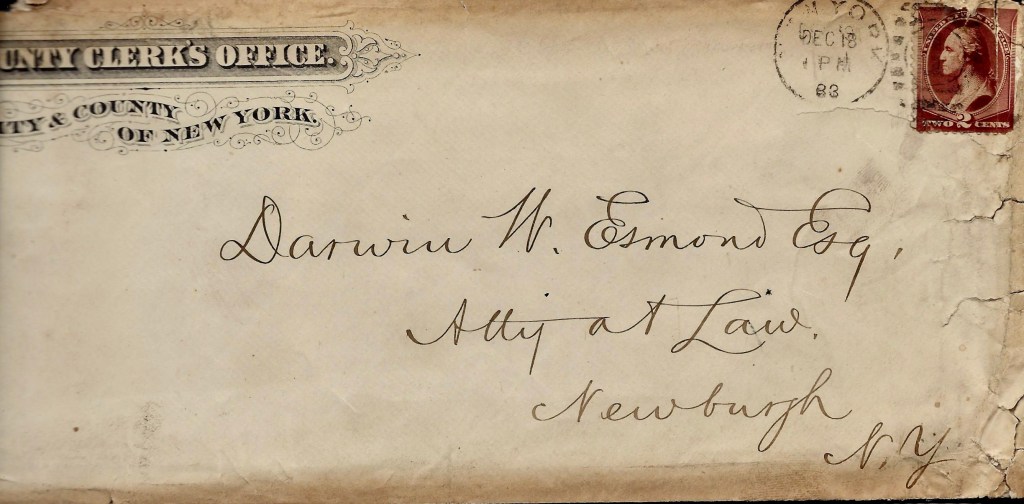 UNTY CLERK'S OFFICE.
ITY & COUNTY
OF NEW YORK.
N YORK
DEC 18
1 PM
83
TWO 2 CENTS
Darwin W. Esmond Esq,
Atty at Law.
Newburgh
N.Y